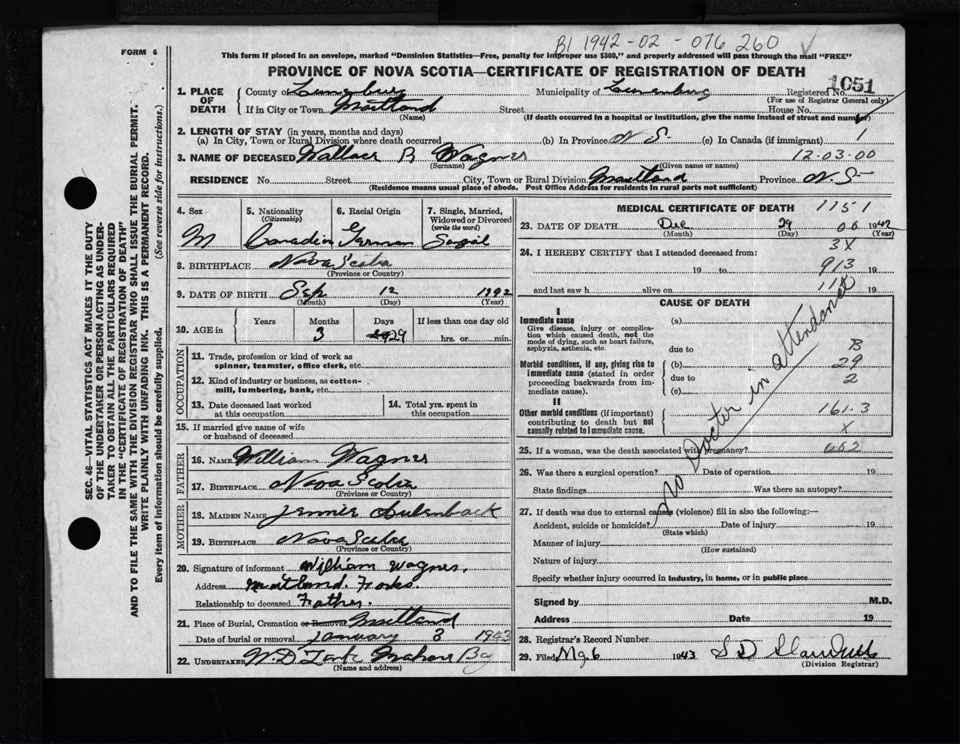 B1 1942-02-076260
FORM 6
This form if placed in an envelope, marked "Dominion Statistics—Free, penalty for improper use $300," and properly addressed will pass through the mail "FREE"
PROVINCE OF NOVA SCOTIA—CERTIFICATE OF REGISTRATION OF DEATH
1051
1. PLACE OF DEATH
County of Lunenburg Municipality of Lunenburg Registered No.
(For use of Registrar General only)
If in City or Town Maitland Street House No.
(Name) (If death occurred in a hospital or institution, give the name instead of street and number)
2. LENGTH OF STAY (in years, months and days)
(a) In City, Town or Rural Division where death occurred (b) In Province N S (c) In Canada (if immigrant) 1
3. NAME OF DECEASED Wallace B Wagner 12-03-00
(Surname) (Given name or names)
RESIDENCE No. Street City, Town or Rural Division Maitland Province N. S
(Residence means usual place of abode. Post Office Address for residents in rural parts not sufficient)
4. Sex
M
5. Nationality (Citizenship)
Canadian
6. Racial Origin
German
7. Single, Married, Widowed or Divorced (write the word)
8. BIRTHPLACE Nova Scotia
(Province or Country)
9. DATE OF BIRTH Sep 12
(Month) (Day) (Year)
10. AGE in
Years Months Days If less than one day old
3 29 hrs. or min.
OCCUPATION
11. Trade, profession or kind of work as spinner, teamster, office clerk, etc.
12. Kind of industry or business, as cotton-mill, lumbering, bank, etc.
13. Date deceased last worked at this occupation.
14. Total yrs. spent in this occupation.
15. If married give name of wife or husband of deceased
FATHER
16. NAME William Wagner
17. BIRTHPLACE Nova Scotia
(Province or Country)
MOTHER
18. MAIDEN NAME Jennie Aulenback
19. BIRTHPLACE Nova Scotia
(Province or Country)
20. Signature of informant William Wagner.
Address Maitland. Forks.
Relationship to deceased Father.
21. Place of Burial, Cremation or Removal Maitland
Date of burial or removal January 3 1943
22. UNDERTAKER W. D. Mahone Bay
(Name and address)
MEDICAL CERTIFICATE OF DEATH 1151
23. DATE OF DEATH Dec 29 1942
(Month) (Day) (Year)
3X
24. I HEREBY CERTIFY that I attended deceased from:
913
19 to 19
and last saw h alive on 19
CAUSE OF DEATH
I
Immediate cause (a)
Give disease, injury or complication which caused death, not the mode of dying, such as heart failure, asphyxia, asthenia, etc.
due to B
Morbid conditions, if any, giving rise to immediate cause (stated in order proceeding backwards from immediate cause).
(b) 29
due to 2
(c)
II
Other morbid conditions (if important) contributing to death but not causally related to immediate cause.
161.3
X
No Doctor in attendance
25. If a woman, was the death associated with pregnancy?
26. Was there a surgical operation? Date of operation 19
State findings Was there an autopsy?
27. If death was due to external causes (violence) fill in also the following:—
Accident, suicide or homicide? Date of injury 19
(State which)
Manner of injury
(How sustained)
Nature of injury
Specify whether injury occurred in industry, in home, or in public place
Signed by M.D.
Address Date 19
28. Registrar's Record Number
29. Filed 1943
(Division Registrar)
SEC. 46—VITAL STATISTICS ACT MAKES IT THE DUTY
OF THE UNDERTAKER OR PERSON ACTING AS UNDER-
TAKER TO OBTAIN ALL THE PARTICULARS REQUIRED
IN THE "CERTIFICATE OF REGISTRATION OF DEATH"
AND TO FILE THE SAME WITH THE DIVISION REGISTRAR WHO SHALL ISSUE THE BURIAL PERMIT.
WRITE PLAINLY WITH UNFADING INK. THIS IS A PERMANENT RECORD.
Every item of information should be carefully supplied. (See reverse side for instructions.)